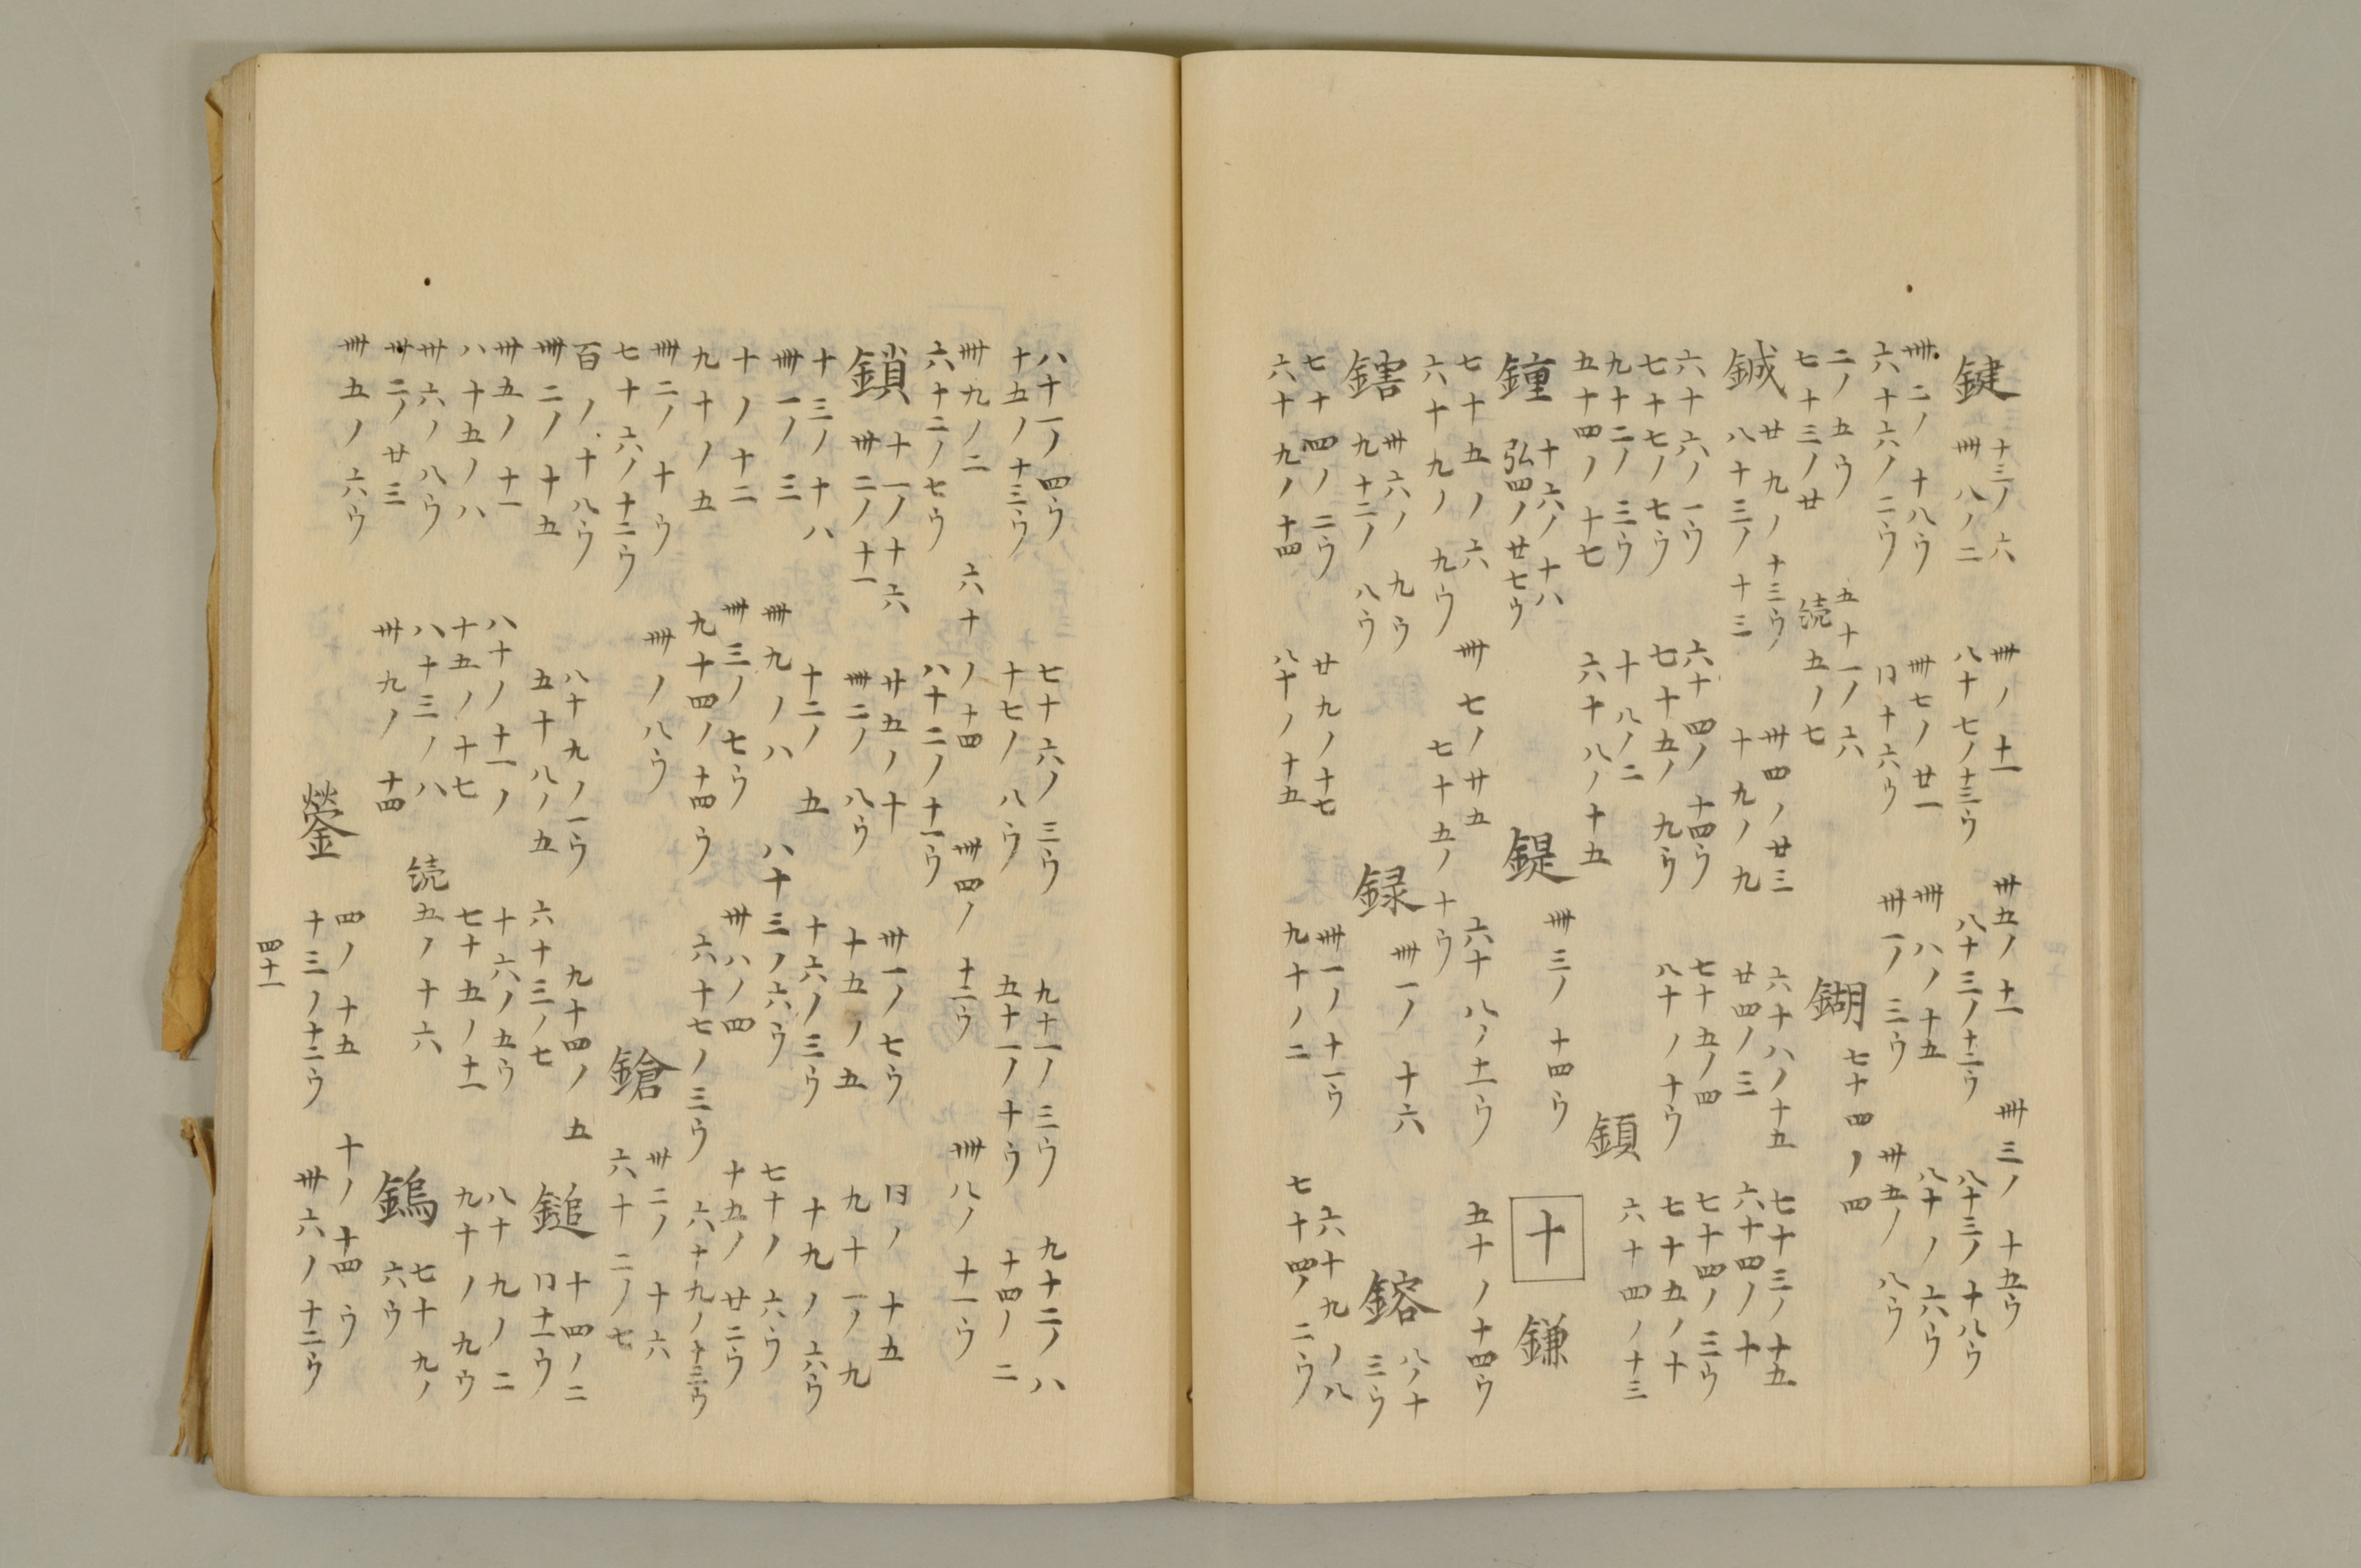 鍵 十三ノ六 卅ノ十一 卅五ノ十一 卌三ノ十五ウ
卌八ノ二 八十七ノ十三ウ 八十三ノ十二ウ 八十三ノ十八ウ
卌二ノ十八ウ 卌七ノ廿一 卌八ノ十五 八十ノ六ウ
六十六ノ二ウ 冂十六ウ 卅一ノ三ウ 卅五ノ八ウ
二ノ五ウ 五十一ノ六 鍸 七十四ノ四
七十三ノ廿 続五ノ七
鍼 廿九ノ十三ウ 卅四ノ廿三 六十八ノ十五 七十三ノ十五
八十三ノ十三 十九ノ九 廿四ノ三 六十四ノ十
六十六ノ一ウ 六十四ノ十四ウ 七十五ノ四 七十四ノ三ウ
七十七ノ七ウ 七十五ノ九ウ 八十ノ十ウ 七十五ノ十
九十二ノ三ウ 十八ノ二 鍞 六十四ノ十三
五十四ノ十七 六十八ノ十五
鍾 十六ノ十八 鍉 卌三ノ十四ウ 十 鎌
弘四ノ廿七ウ
七十五ノ六 卌七ノ廿五 六十八ノ十一ウ 五十ノ十四ウ
六十九ノ九ウ 七十五ノ十ウ
鎋 卅六ノ九ウ 録 卌一ノ十六 鎔 八ノ十
九十二ノ八ウ 三ウ
七十四ノ二ウ 廿九ノ十七 卌一ノ十一ウ 六十九ノ八
六十九ノ十四 八十ノ十五 九十ノ二 七十四ノ二ウ
八十一ノ四ウ 七十六ノ三ウ 九十一ノ三ウ 九十二ノ八
十五ノ十三ウ 十七ノ八ウ 五十一ノ十ウ 十四ノ二
卌九ノ二 六十ノ十四 卌四ノ十二ウ 卌八ノ十一ウ
六十二ノ七ウ 八十二ノ十一ウ
鎖 十一ノ十六 廿五ノ十 卅一ノ七ウ 冃ノ十五
卅二ノ十一 卌二ノ八ウ 十五ノ五 九十一ノ九
十三ノ十八 十二ノ五 十六ノ三ウ 十九ノ六ウ
卌一ノ三 卌九ノ八 八十三ノ六ウ 七十ノ六ウ
十ノ十二 卌三ノ七ウ 卅八ノ四 十五ノ廿二ウ
九十ノ五 九十四ノ十四ウ 六十七ノ三ウ 六十九ノ十三ウ
卌二ノ十ウ 卌ノ八ウ 鎗 卅二ノ十六
七十六ノ十二ウ 六十二ノ七
百ノ十八ウ 八十九ノ一ウ 九十四ノ五 鎚 十四ノ二
卌二ノ十五 五十八ノ五 六十三ノ七 冂十一ウ
卅五ノ十一 八十ノ十一ノ 十六ノ五ウ 八十九ノ二
八十五ノ八 十五ノ十七 七十五ノ十一 九十ノ九ウ
卅六ノ八ウ 八十三ノ八 続五ノ十六 鎢 七十九ノ
卅二ノ廿三 卅九ノ十四 六ウ
卌五ノ六ウ 鎣 四ノ十五 十ノ十四ウ
十三ノ十二ウ 卅六ノ十二ウ
四十一